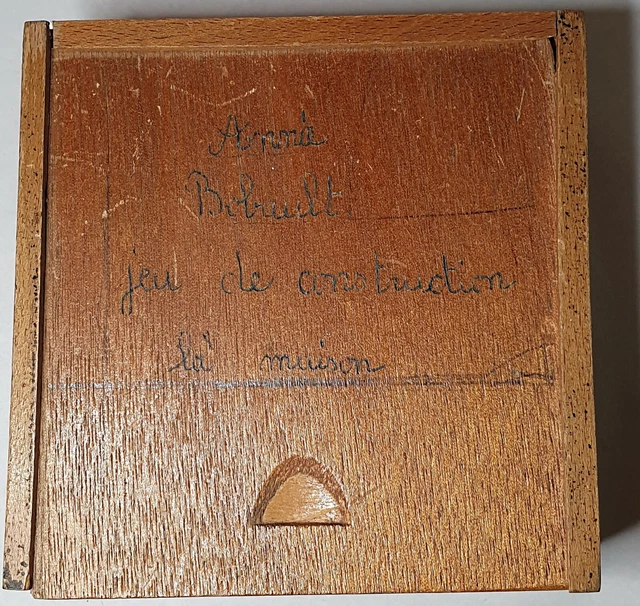 Anna
Bobault
jeu de construction
là maison